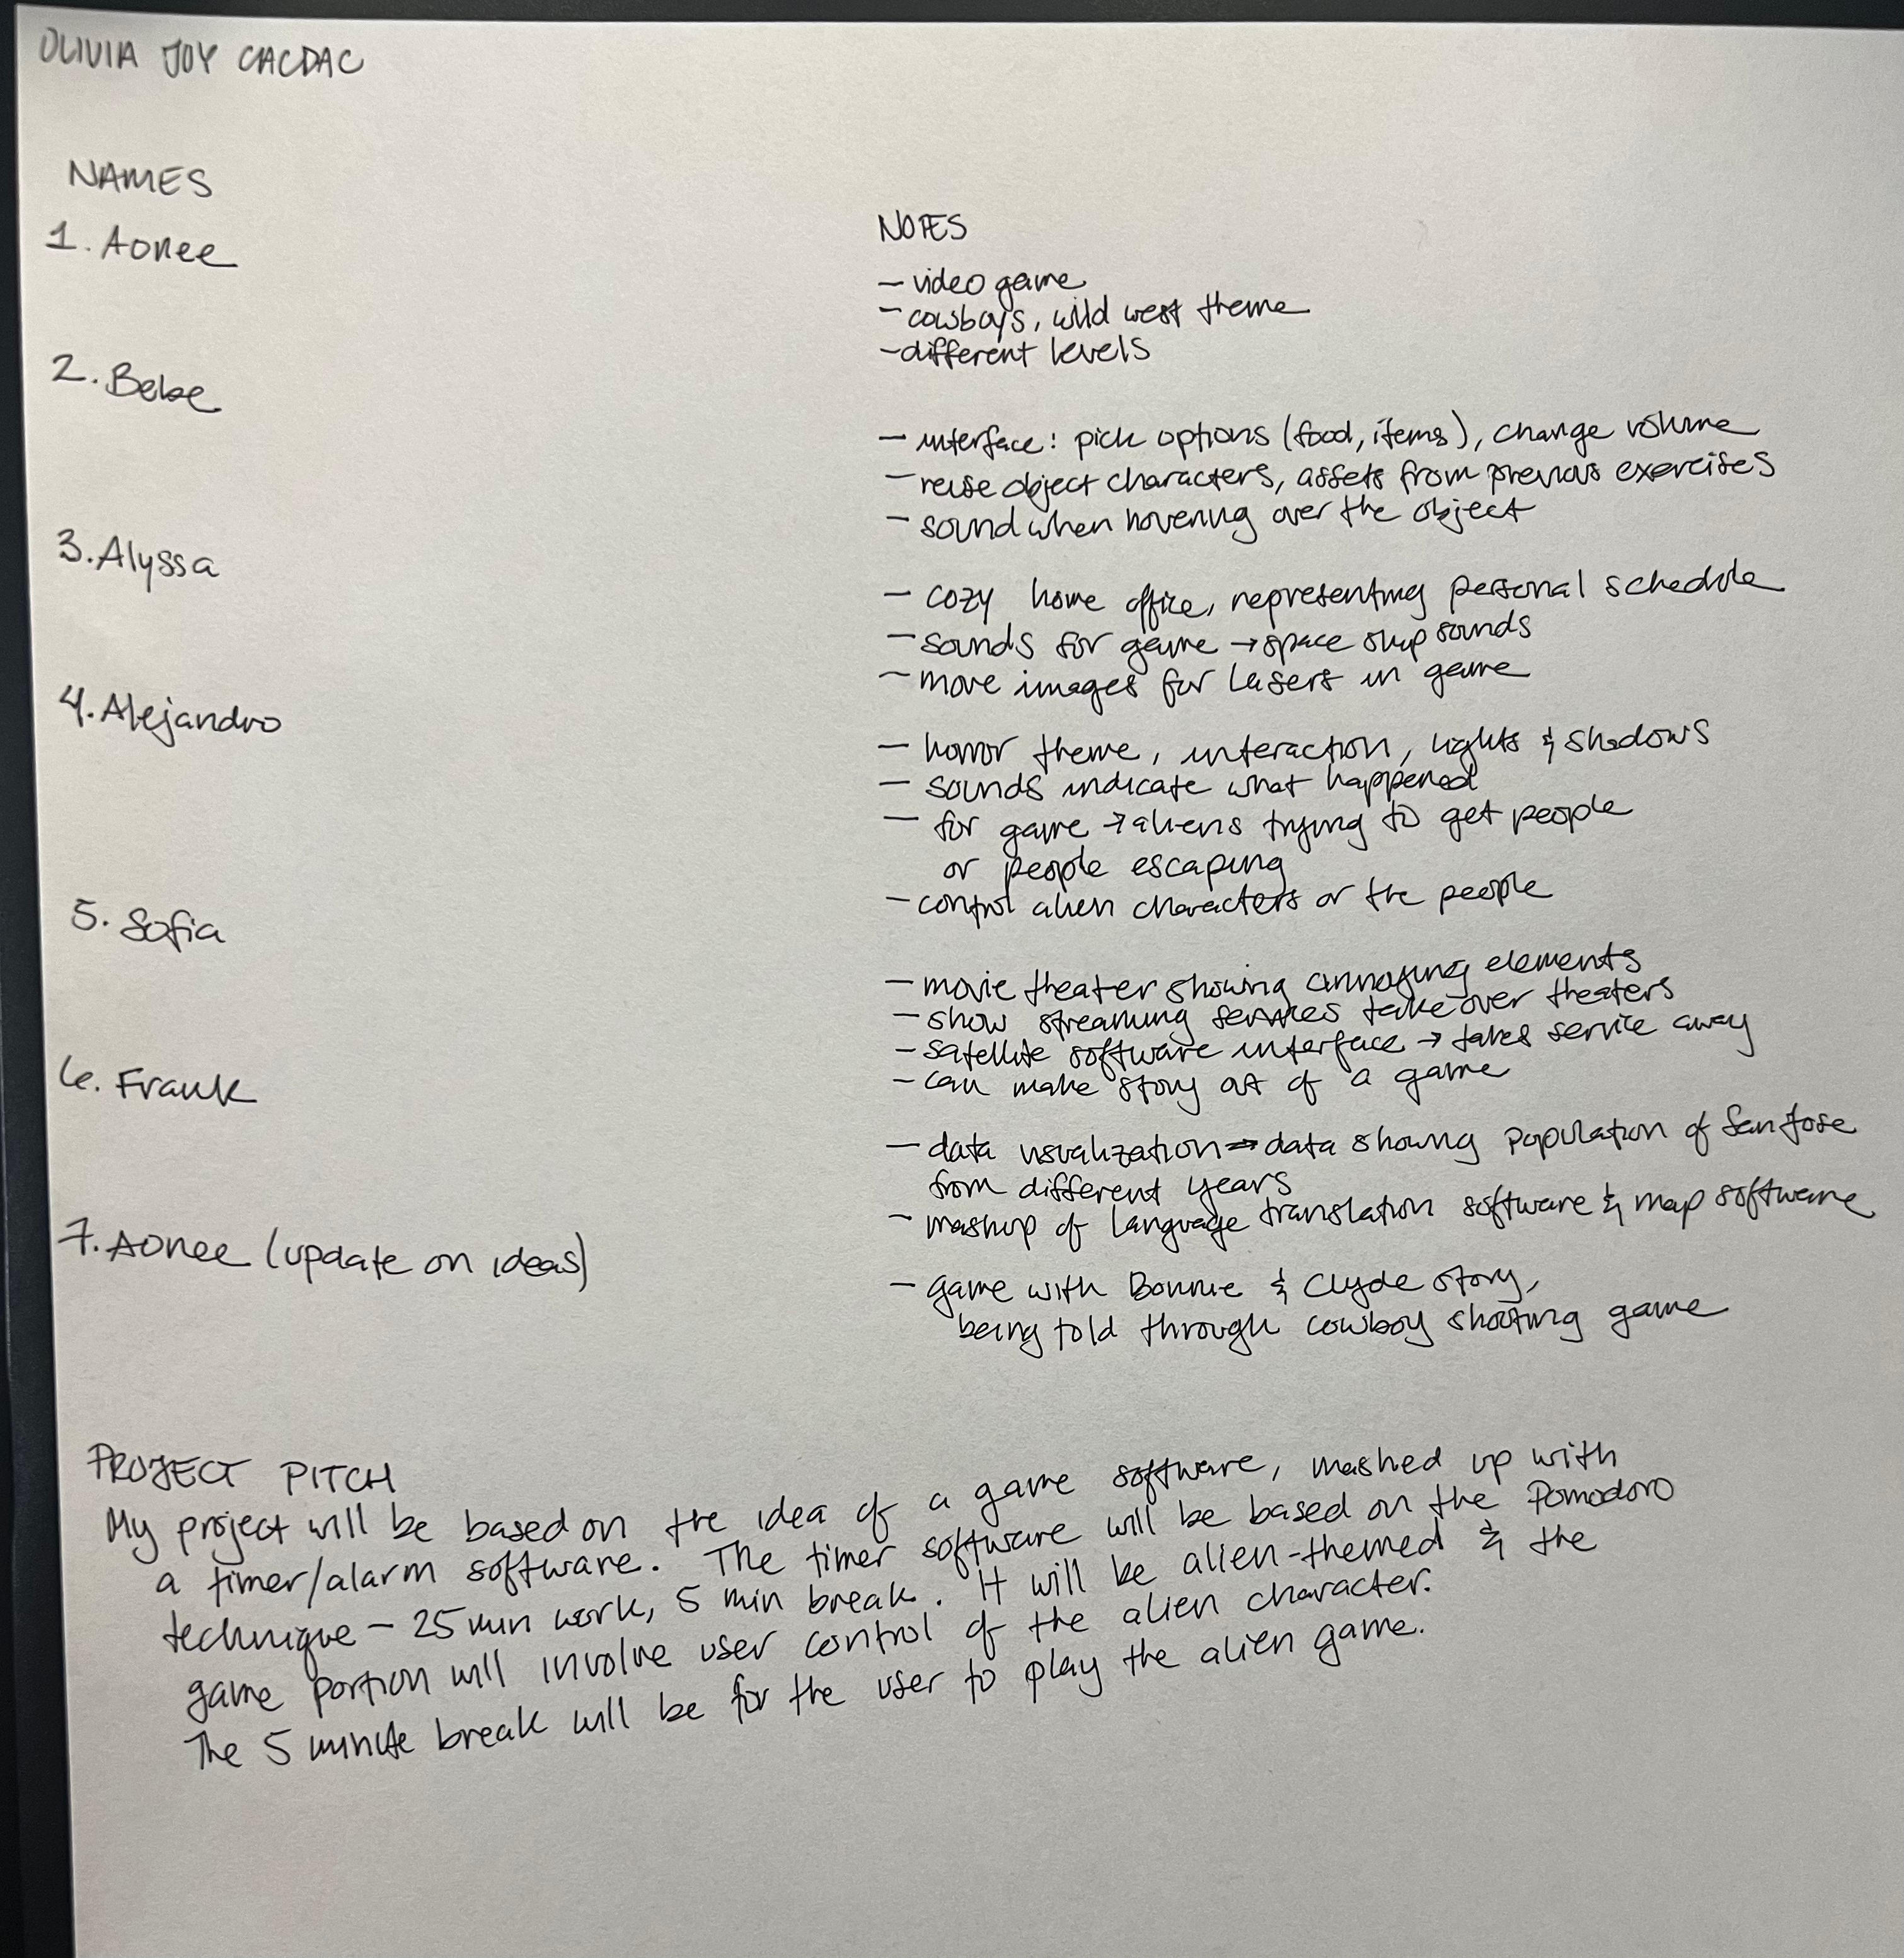 OLIVIA JOY CACDAC
NAMES
1. Aonee
2. Bebe
3. Alyssa
4. Alejandro
5. Sofia
6. Frank
7. Aonee (update on ideas)
NOTES
- video game
- cowboys, wild west theme
- different levels
- interface: pick options (food, items), change volume
- reuse object characters, assets from previous exercises
- sound when hovering over the object
- cozy home office, representing personal schedule
- sounds for game → space ship sounds
- move images for lasers in game
- horror theme, interaction, lights & shadows
- sounds indicate what happened
- for game → aliens trying to get people
or people escaping
- control alien characters or the people
- movie theater showing annoying elements
- show streaming services take over theaters
- satellite software interface → takes service away
- can make story out of a game
- data visualization → data showing population of San Jose
from different years
- mashup of language translation software & map software
- game with Bonnie & Clyde story,
being told through cowboy shooting game
PROJECT PITCH
My project will be based on the idea of a game software, mashed up with
a timer/alarm software. The timer software will be based on the Pomodoro
technique - 25 min work, 5 min break. It will be alien-themed & the
game portion will involve user control of the alien character.
The 5 minute break will be for the user to play the alien game.